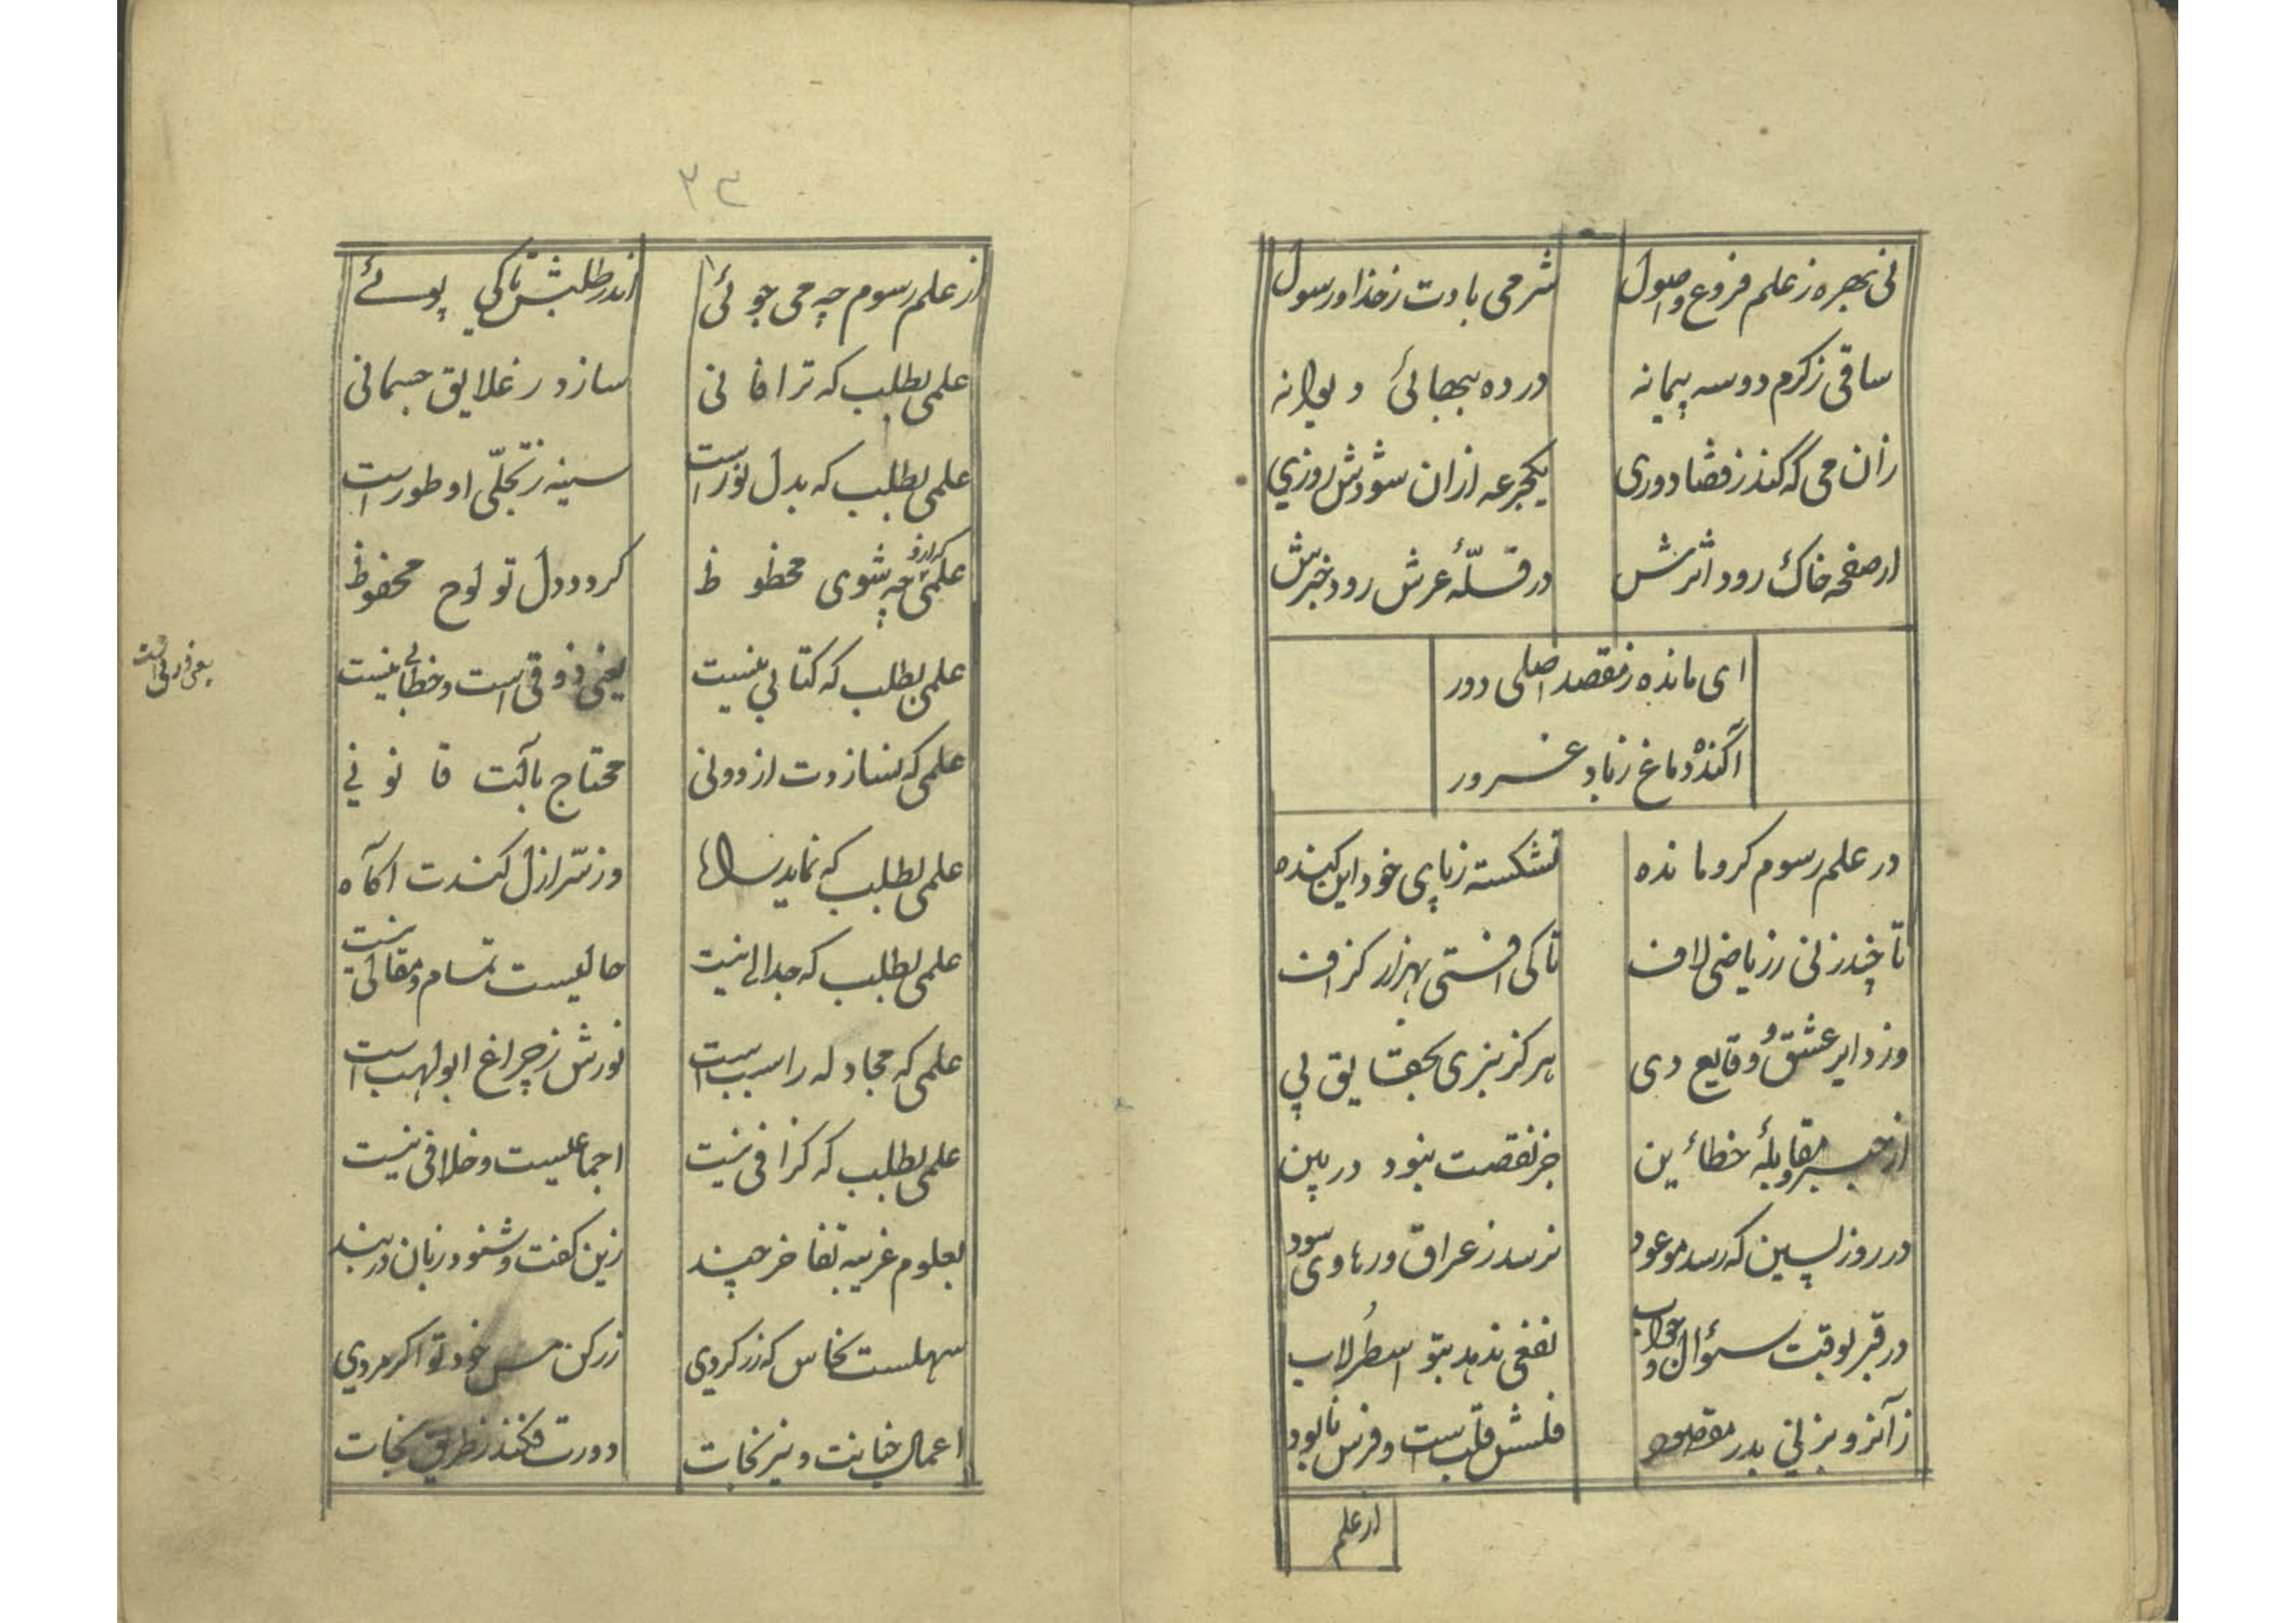 نی بهره ز علم فروع و اصول شرمی بادت ز خدا و رسول
ساقی ز کرم دو سه پیمانه در ده ببهائی دیوانه
زان می که کند ز قضا دوری یکجرعه ازان شودش روزی
از صفحه خاک رود اثرش در قلّهٔ عرش رود خبرش
ای مانده ز مقصد اصلی دور
آکنده دماغ ز باد غرور
در علم رسوم گرو مانده نشکسته ز پای خود این کنده
تا چند زنی ز ریاضی لاف تا کی افتی بهزار گزاف
وز دایر عشق و وقایع دی هرگز نبری بحقایق پی
از جبر و مقابلهٔ خطائین جز نقصت نبود در بین
در روز پسین که رسد موعود نرسد ز عراق و رهاوی سود
در قبر بوقت سئوال و جواب نفعی ندهد بتو اسطرلاب
زآنرو نزنی بدر مقصود فلسش قلب است و فرس نابود
از علم
۳۳
از علم رسوم چه می جوئی اندر طلبش تا کی پوئے
علمی بطلب که ترا فانی سازد ز علایق جسمانی
علمی بطلب که بدل نور است سینه ز تجلّی او طور است
علمی که ازو چه شوی محظوظ گردد دل تو لوح محفوظ
علمی بطلب که کتابی نیست یعنی ذوقی است و خطابی نیست
یعنی ذوقی است
علمی که نسازدت از دونی محتاج بآلت قانونی
علمی بطلب که نماید راه وز سّر ازل کندت اکآه
علمی بطلب که جدالی نیست حالیست تمام و مقالی نیست
علمی که مجادله را سبب است نورش ز چراغ ابولهب است
علمی بطلب که گزافی نیست اجماعیست و خلافی نیست
بعلوم غریبه تفاخر چند زین گفت و شنود زبان در بند
سهلست نحاس که زر کردی زر کن مس خود تو اگر مردی
اعمال خیانت و نیرنجات دورت فکند ز طریق نجات